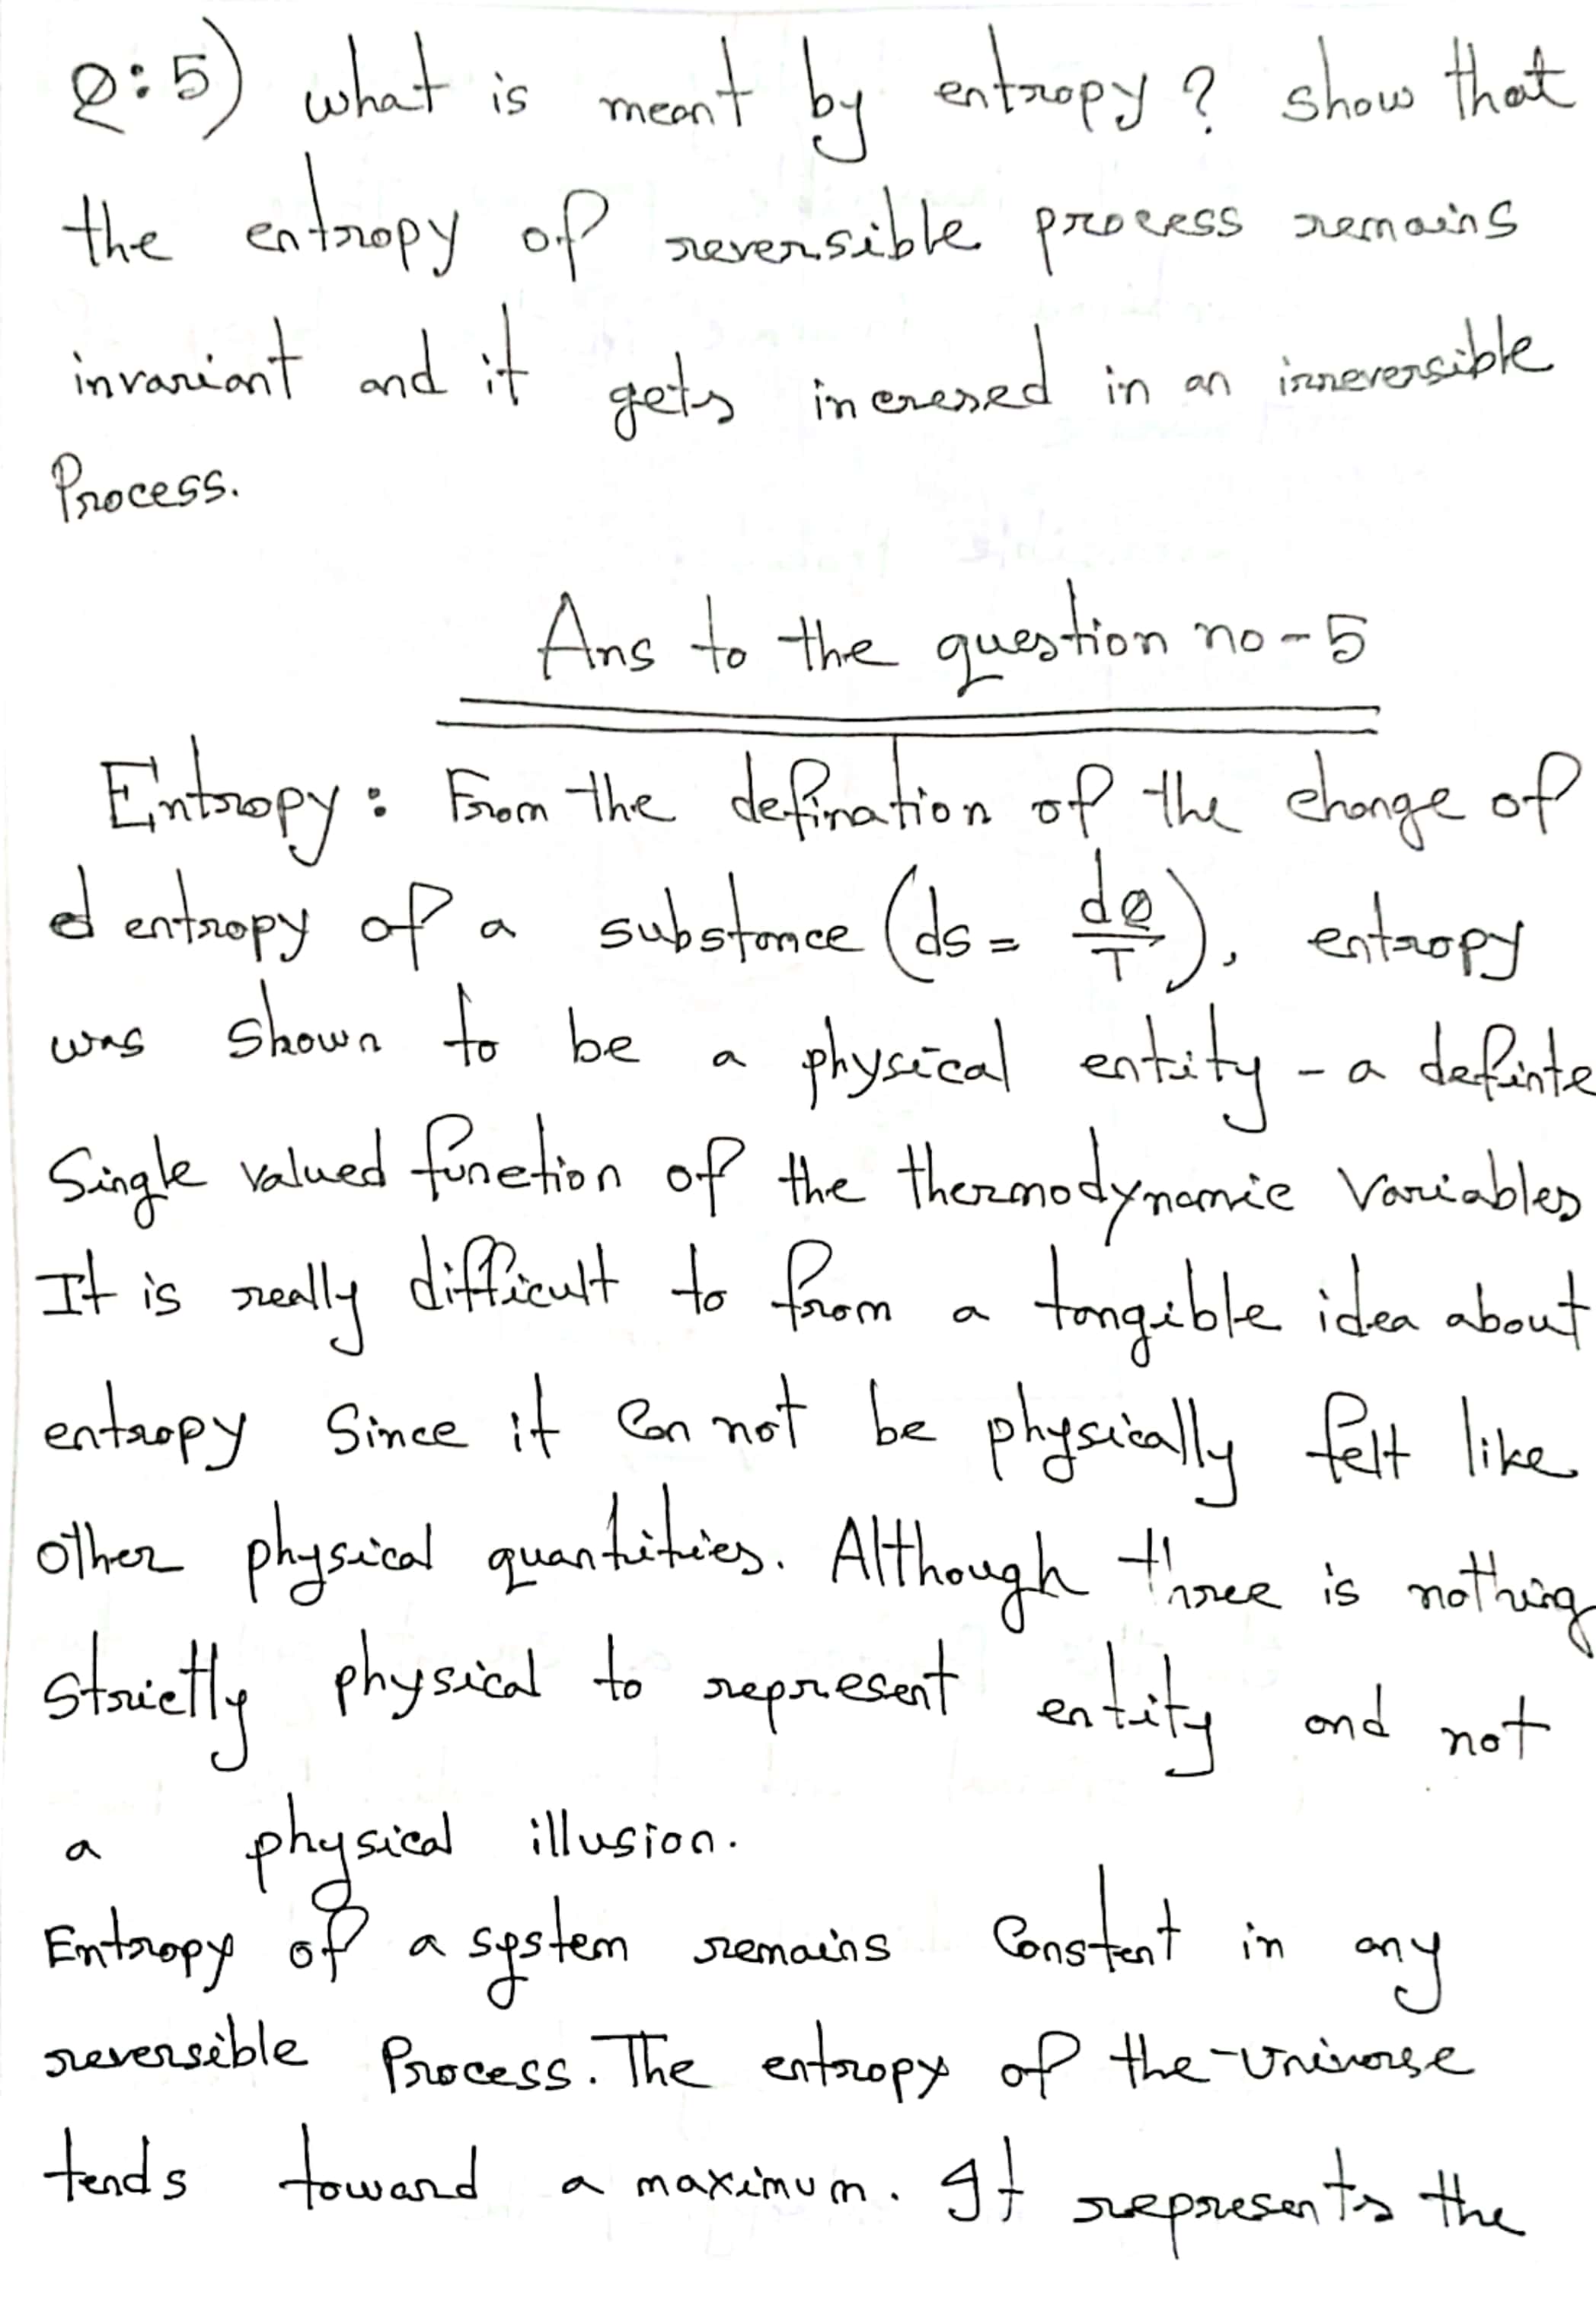 Q:5) what is meant by entropy? show that
the entropy of reversible process remains
invariant and it gets incresed in an irreversible
Process.
Ans to the question no-5
Entropy: From the defination of the change of
d entropy of a substance (ds = dQ/T), entropy
was shown to be a physical entity - a definte
Single valued function of the thermodynamic variables
It is really difficult to from a tangible idea about
entropy Since it Can not be physically felt like
other physical quantities. Although three is nothing
Strictly physical to represent entity and not
a physical illusion.
Entropy of a system remains Constent in any
reversible Process. The entropy of the-Universe
tends toward a maximum. It represents the